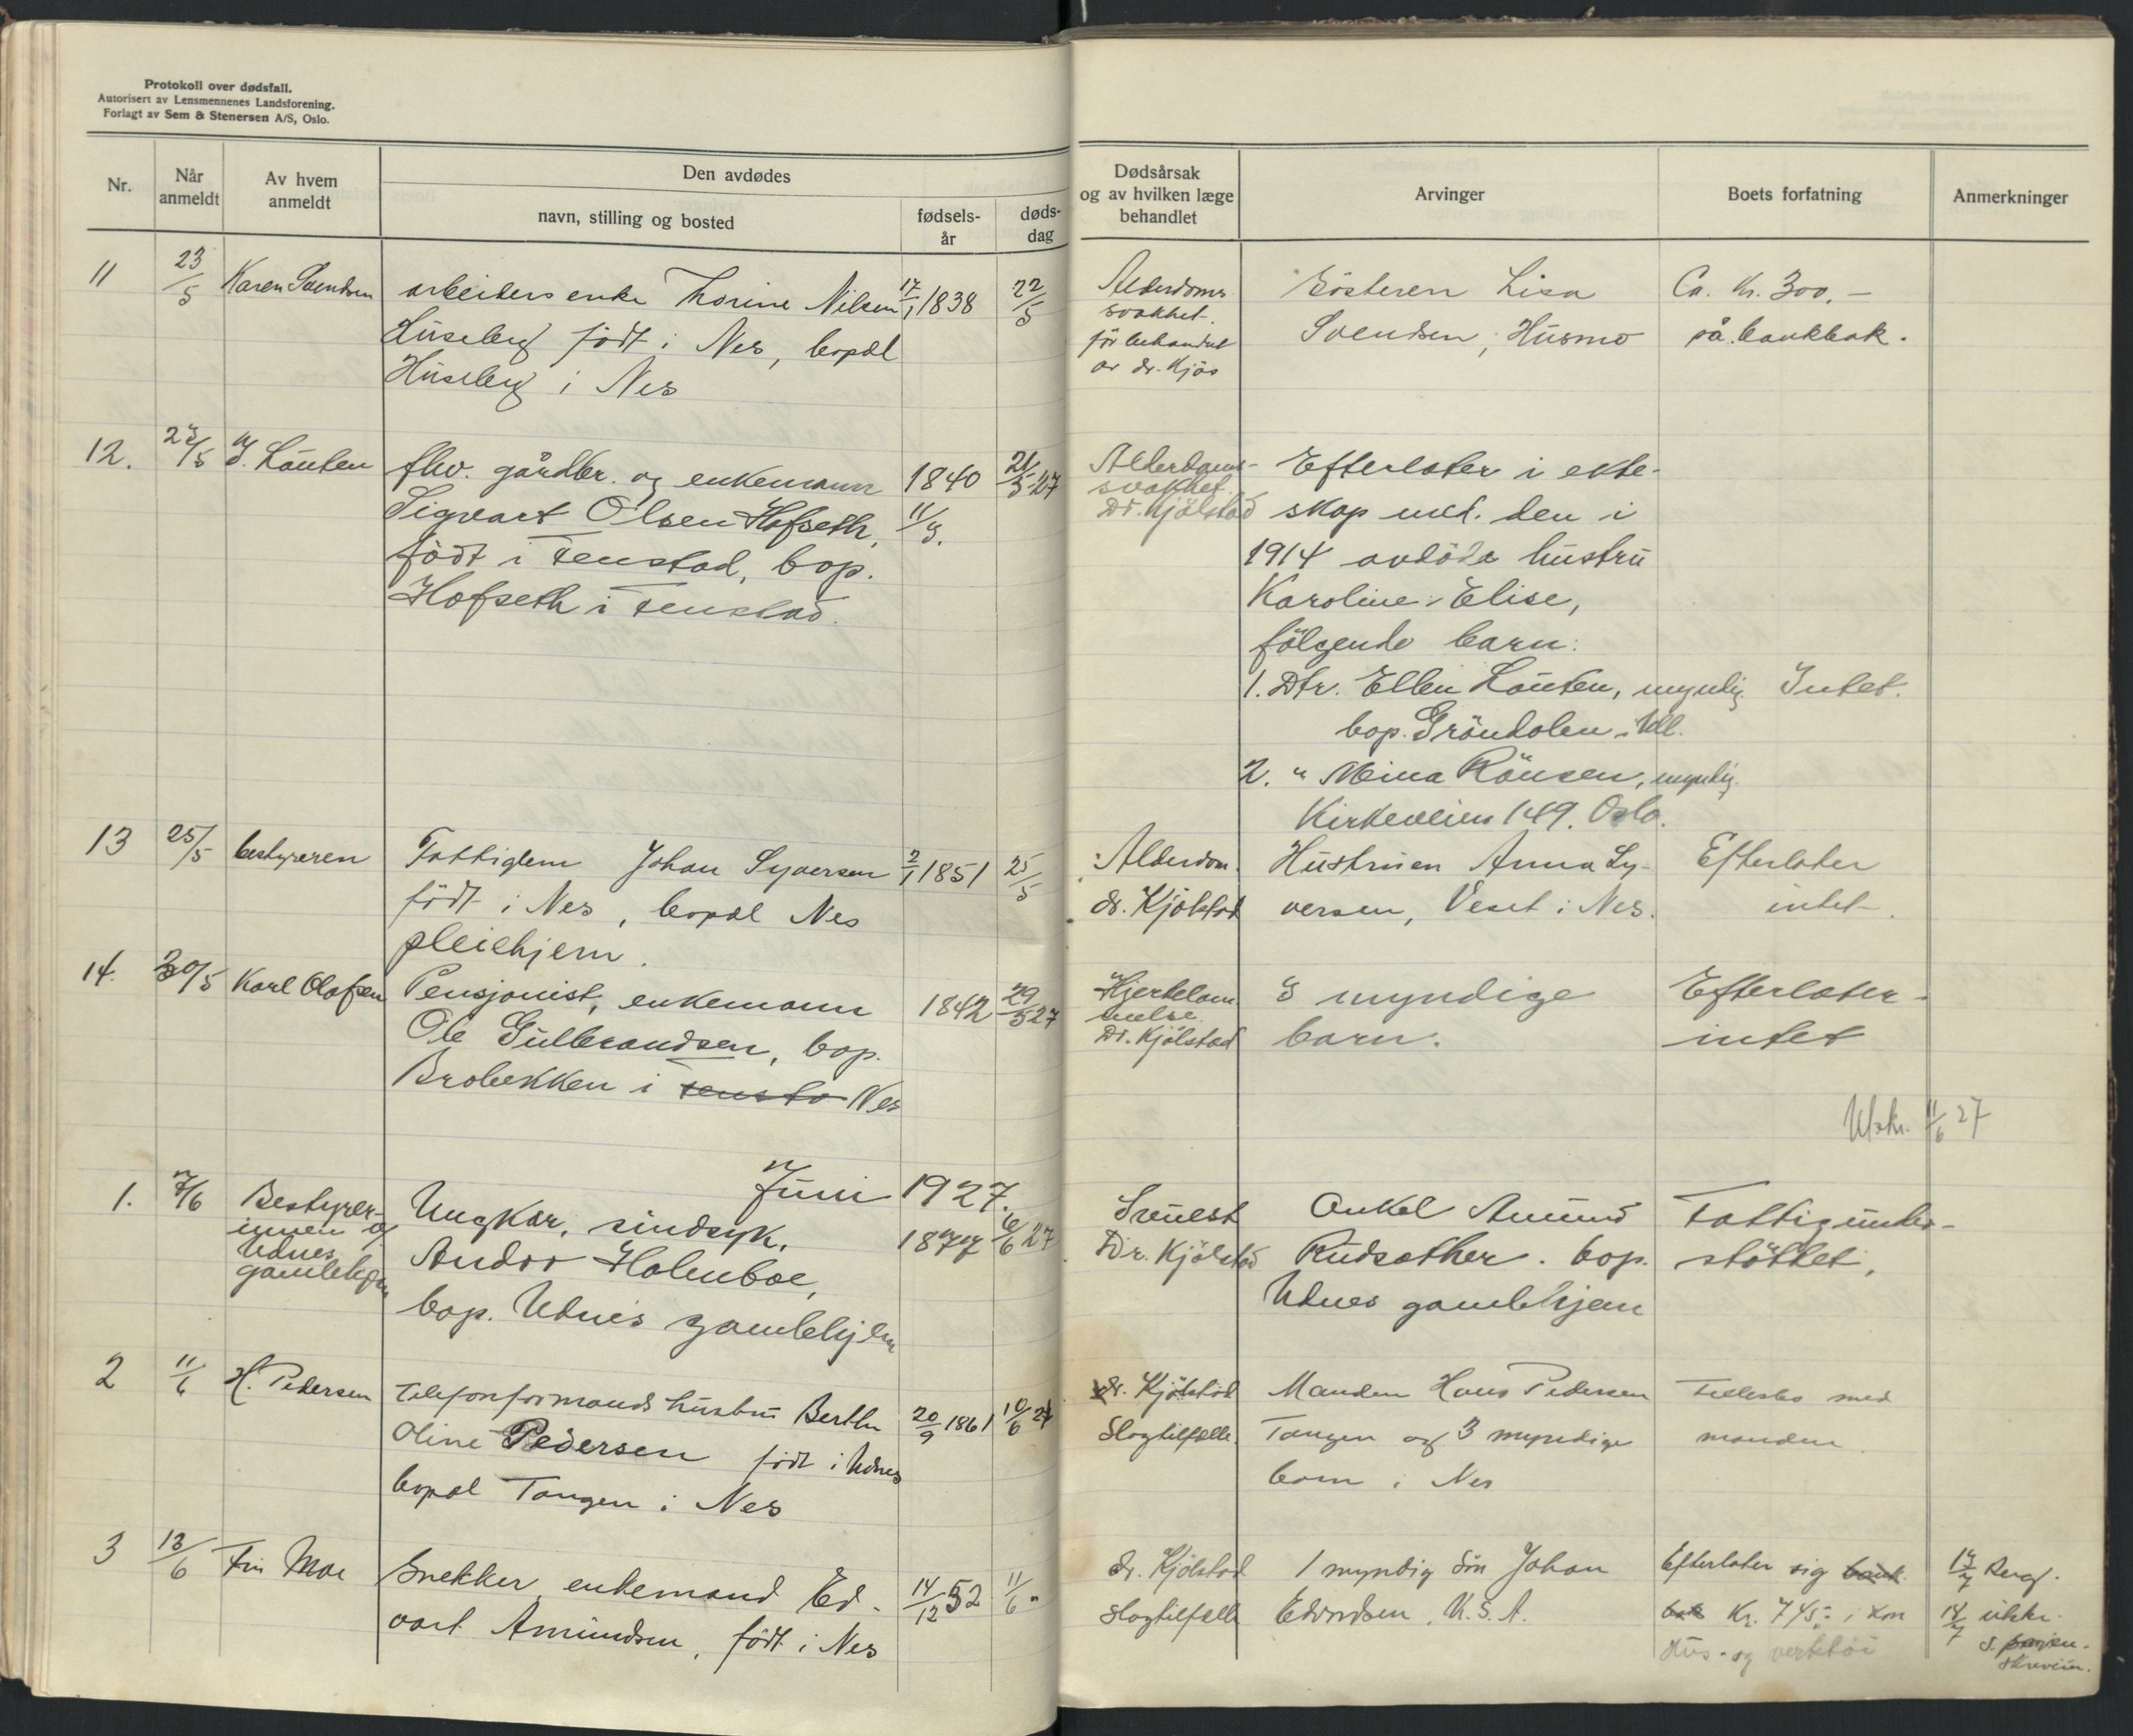 Protokoll over dødsfall.
Autorisert av Lensmennenes Landsforening.
Forlagt av Sem & Stenersen A/S, Oslo.
Nr.
Når anmeldt
Av hvem anmeldt
Den avdødes
navn, stilling og bosted
fødsels-år
døds-dag
Dødsårsak og av hvilken læge behandlet
Arvinger
Boets forfatning
Anmerkninger
11 23/5 Karen Svendsen arbeiders enke Thorine Nilsen 17/1 1838 22/5
Huseby født i Nes, bopæl
Huseby i Nes
Alderdoms
svakhet.
før behandlet
av dr. Kjøs
Søsteren Lisa
Svendsen, Husmo
Ca. kr. 300,-
på bankbok.
12. 23/5 Lauten fhv. gårdbr. og enkemann 1840 21/5-27
Sigvart Olsen Hofseth, 11/3.
født i Fenstad, bop.
Hofseth i Fenstad.
Alderdoms-
svakhet.
Dr. Kjølstad
Efterlater i ekte-
skap med den i
1914 avdøde hustru
Karoline Elise,
følgende barn:
1. Dtr. Ellen Lauten, myndig
bop. Grøndalen, Ull.
2. " Mina Rønsen, myndig.
Kirkeveien 149. Oslo.
Intet.
13 25/5 bestyreren Fattiglem Johan Syversen 2/1 1851 25/5
født i Nes, bopæl Nes
pleiehjem.
Alderdom.
dr. Kjølstad
Hustruen Anna Sy-
versen, Veset i Nes.
Efterlater
intet.
14. 30/5 Karl Olafsen Pensjonist, enkemann 1842 29/5 27
Ole Gulbrandsen, bop.
Brobekken i Fensta Nes
Hjertelam
melse.
Dr. Kjølstad
3 myndige
barn.
Efterlater
intet
Utskr. 11/6 27
Juni 1927.
1. 7/6 Bestyrer-
innen og
Udnes
gamlehjem
Ungkar, sindsyk, 1877 6/6 27
Andor Holmboe,
bop. Udnes gamlehjem
Dr. Kjølstad
Onkel Amund
Rudsather. bop.
Udnes gamlehjem
Fattigunder-
støttet.
2 11/6 H. Pedersen Telefonformands hustru Berthe 20/9 1861 10/6 27
Oline Pedersen født i Udnes
bopæl Tangen i Nes
dr. Kjølstad
Slagtilfælle.
Manden Hans Pedersen
Tangen og 3 myndige
barn i Nes
Fellesbo med
manden.
3 13/6 Fru Moe Snekker enkemand Ed- 14/12 52 11/6 "
vart Amundsen, født i Nes
dr. Kjølstad
slagtilfelle
1 myndig søn Johan
Edvardsen, U.S.A.
Efterlater sig bank
bok Kr. 745.- i kon
Hus- og verktøi
14/7 utskr.
s. sorenskriveren.